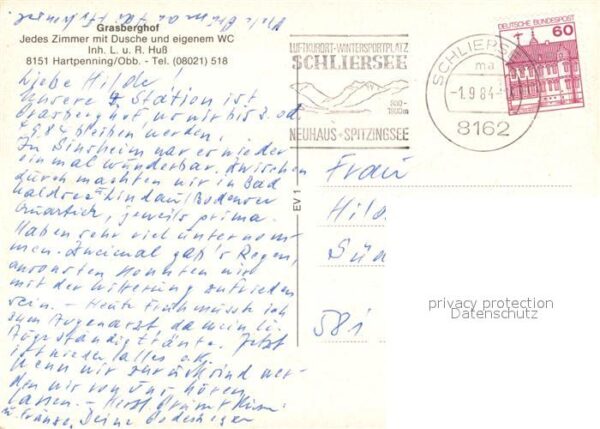 Grasberghof
Jedes Zimmer mit Dusche und eigenem WC
Inh. L. u. R. Huß
8151 Hartpenning/Obb. - Tel. (08021) 518
Liebe Hilde!
Unsere Station ist
Grasberghof, wo wir bis 3. od.
4.9.84 bleiben werden.
In Sinsheim war es wieder
einmal wunderbar. Zwischen
durch machten wir in Bad
Waldsee Lindau/Bodensee
Quartier, jeweils prima.
Haben sehr viel unternom-
men. Zweimal gab's Regen,
ansonsten konnten wir
mit der Witterung zufrieden
sein. – Heute Früh musste ich
zum Augenarzt, da mein li.
Auge ständig tränte. Jetzt
ist wieder alles o.k.
Wenn wir zurück sind wer-
den wir von uns hören
lassen. – Herzl. Grüße
u. Deine
LUFTKURORT-WINTERSPORTPLATZ
SCHLIERSEE
800-
1800m
NEUHAUS-SPITZINGSEE
SCHLIERSEE
ma
-1.9.84-
8162
DEUTSCHE BUNDESPOST
60
EV 1
Frau
Hild
Süd
581
privacy protection
Datenschutz